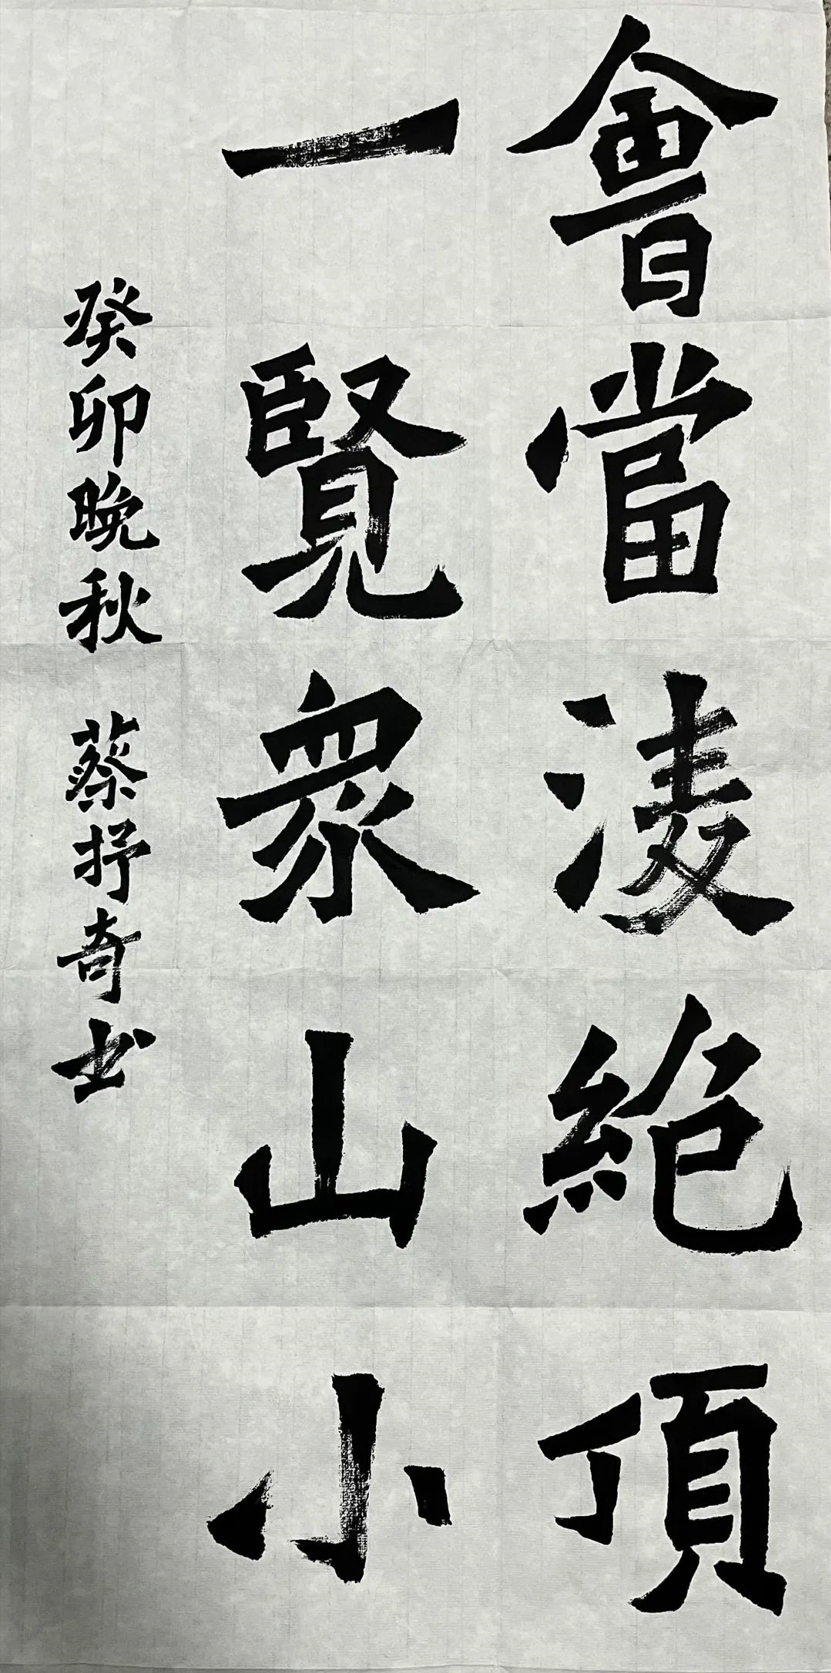 會當淩絶頂
一覽衆山小
癸卯晚秋 蔡抒奇书